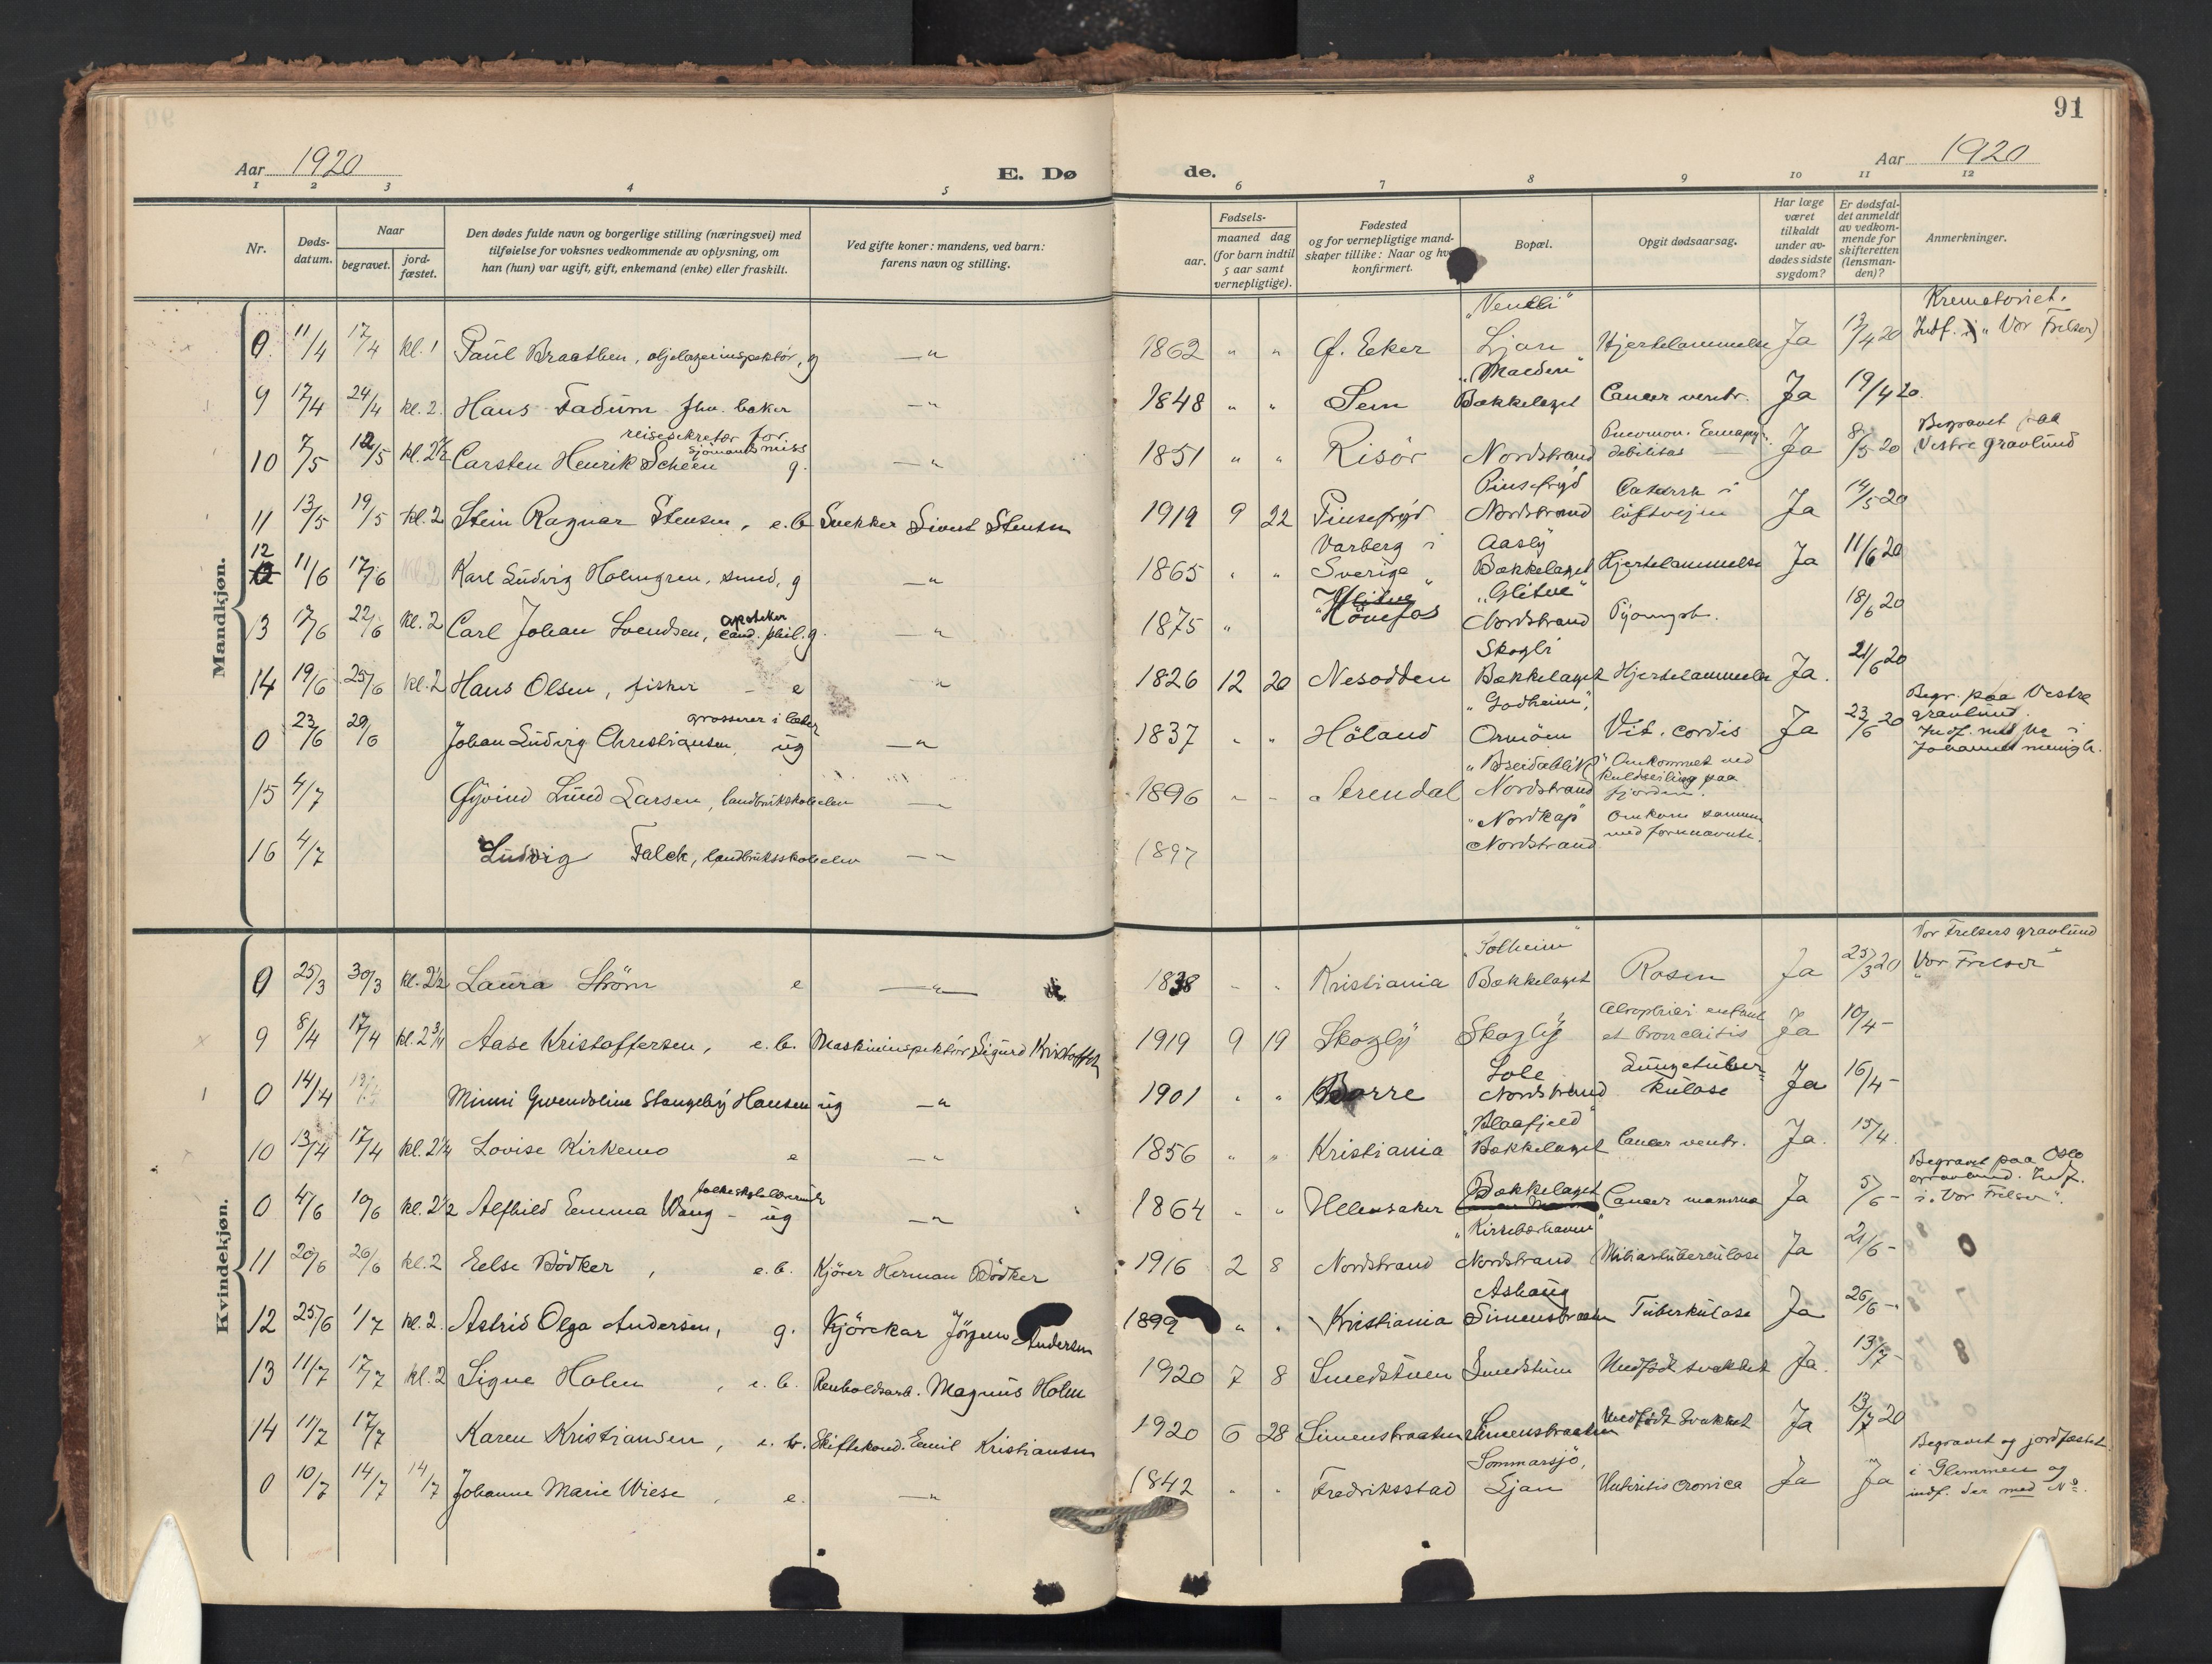 91
Aar 1920
E. Dø de.
Aar 1920
1 2 3 4 5 6 7 8 9 10 11 12
Nr.
Døds-
datum.
Naar
begravet.
jord-
fæstet.
Den dødes fulde navn og borgerlige stilling (næringsvei) med
tilføielse for voksnes vedkommende av oplysning, om
han (hun) var ugift, gift, enkemand (enke) eller fraskilt.
Ved gifte koner: mandens, ved barn:
farens navn og stilling.
Fødsels-
aar.
maaned dag
(for barn indtil
5 aar samt
vernepligtige).
Fødested
og for vernepligtige mand-
skaper tillike: Naar og hv
konfirmert.
Bopæl.
Opgit dødsaarsag.
Har læge
været
tilkaldt
under av-
dødes sidste
sygdom?
Er dødsfal-
det anmeldt
av vedkom-
mende for
skifteretten
(lensman-
den)?
Anmerkninger.
Mandkjøn.
"Venlli" Krematoriet.
0 11/4 17/4 kl. 1 Paul Braathen, oljelagerinspektør, g —"— 1862 " " Ø. Eker Ljan Hjertelammelse Ja 13/4 20 Indf. i "Vor Frelser"
9 17/4 24/4 kl. 2. Hans Fadum fhv. baker —"— 1848 " " Sem Bækkelaget Cancer ventr. Ja 19/4 20.
reisesekretær for Begravet paa
sjömandsmiss
10 7/5 12/5 kl. 2½ Carsten Henrik Scheen g. —"— 1851 " " Risör Nordstrand debilitas Ja 8/5 20 Vestre gravlund
Pinsefryd Catarrh i
11 13/5 19/5 kl. 2 Stein Ragnar Stensen, e.b. Snekker Sivert Stensen 1919 9 22 Pinsefryd Nordstrand luftvejen Ja 14/5 20
12 Varberg i Aasly
11/6 17/6 Karl Ludvig Holmgren, smed, g —"— 1865 " " Sverige Bækkelaget Hjertelammelse Ja 11/6 20
apoteker Glitne "Glitne"
13 17/6 22/6 kl. 2 Carl Johan Svendsen, cand. phil. g. —"— 1875 " "Hönefos Nordstrand 18/6 20
Skogli
14 19/6 25/6 kl. 2 Hans Olsen, fisker — e —"— 1826 12 20 Nesodden Bækkelaget Hjertelammelse Ja. 21/6 20
grosserer i læder "Godheim", Begr. paa Vestre
gravlund.
0 23/6 29/6 Johan Ludvig Christiansen, ug —"— 1837 " " Höland Ormöen Vit. cordis Ja 23/6 20 Indf. med Nr i
Johannes menigh.
"Breidablik" Omkommet ved
kuldseiling paa
15 4/7 Øyvind Lund Larsen, landbrukskoleelev —"— 1896 " " Arendal Nordstrand fjorden.
"Nordkap" Omkom sammen
16 4/7 Ludvig Falck, landbruksskoleelev —"— 1897 Nordstrand med forrnævnte.
Kvindekjøn.
"Solheim" Vor Frelsers gravlund
0 25/3 30/3 kl. 2½ Laura Strøm e —"— 1838 " " Kristiania Bækkelaget Rosen Ja 25/3 20 "Vor Frelser"
9 8/4 17/4 kl. 2¾ Aase Kristoffersen, e.b. Maskininspektör Sigurd Kristoffersen 1919 9 19 Skogly Skogly et bronchitis Ja 10/4 –
Sole Lungetuber=
0 14/4 Minni Gwendoline Stangeby Hansen ug —"— 1901 " " Borre Nordstrand kulose Ja 16/4 –
"Blaafjeld"
10 13/4 17/4 kl. 2¼ Lovise Kirkemo e —"— 1856 " " Kristiania Bækkelaget Cancer ventr. Ja. 15/4.
folkeskolelærerinde Begravet paa Oslo
gravlund. Indf.
0 4/6 10/6 kl. 2½ Alfhild Emma Wang – ug —"— 1864 " " Ullensaker Bækkelaget Cancer mamma Ja 5/6 – i "Vor Frelser".
"Kirsebærhaven"
11 20/6 26/6 kl. 2 Else Bödker, e.b. Kjörer Herman Bödker 1916 2 8 Nordstrand Nordstrand Miliærtuberculose Ja 21/6 –
Ashaug
12 25/6 1/7 kl. 2. Astrid Olga Andersen, g. Kjörekar Jörgen Andersen 1899 " " Kristiania Simensbraaten Tuberkulose Ja 26/6 –
13 11/7 17/7 kl. 2 Signe Holm, e.b. Renholdsarb. Magnus Holm 1920 7 8 Smedstuen Smedstuen Medfödt svakhet Ja. 13/7 –
14 11/7 17/7 Karen Kristiansen, e.b. Skiftekond. Emil Kristiansen 1920 6 28 Simensbraaten Simensbraaten Medfödt svakhet Ja 13/7 20
Sommarsjö, Begravet og jordfæstet
i Glemmen og
0 10/7 14/7 14/7 Johanne Marie Wiese, e. —"— 1842 " " Fredriksstad Ljan cronica Ja Ja indf. der med No.